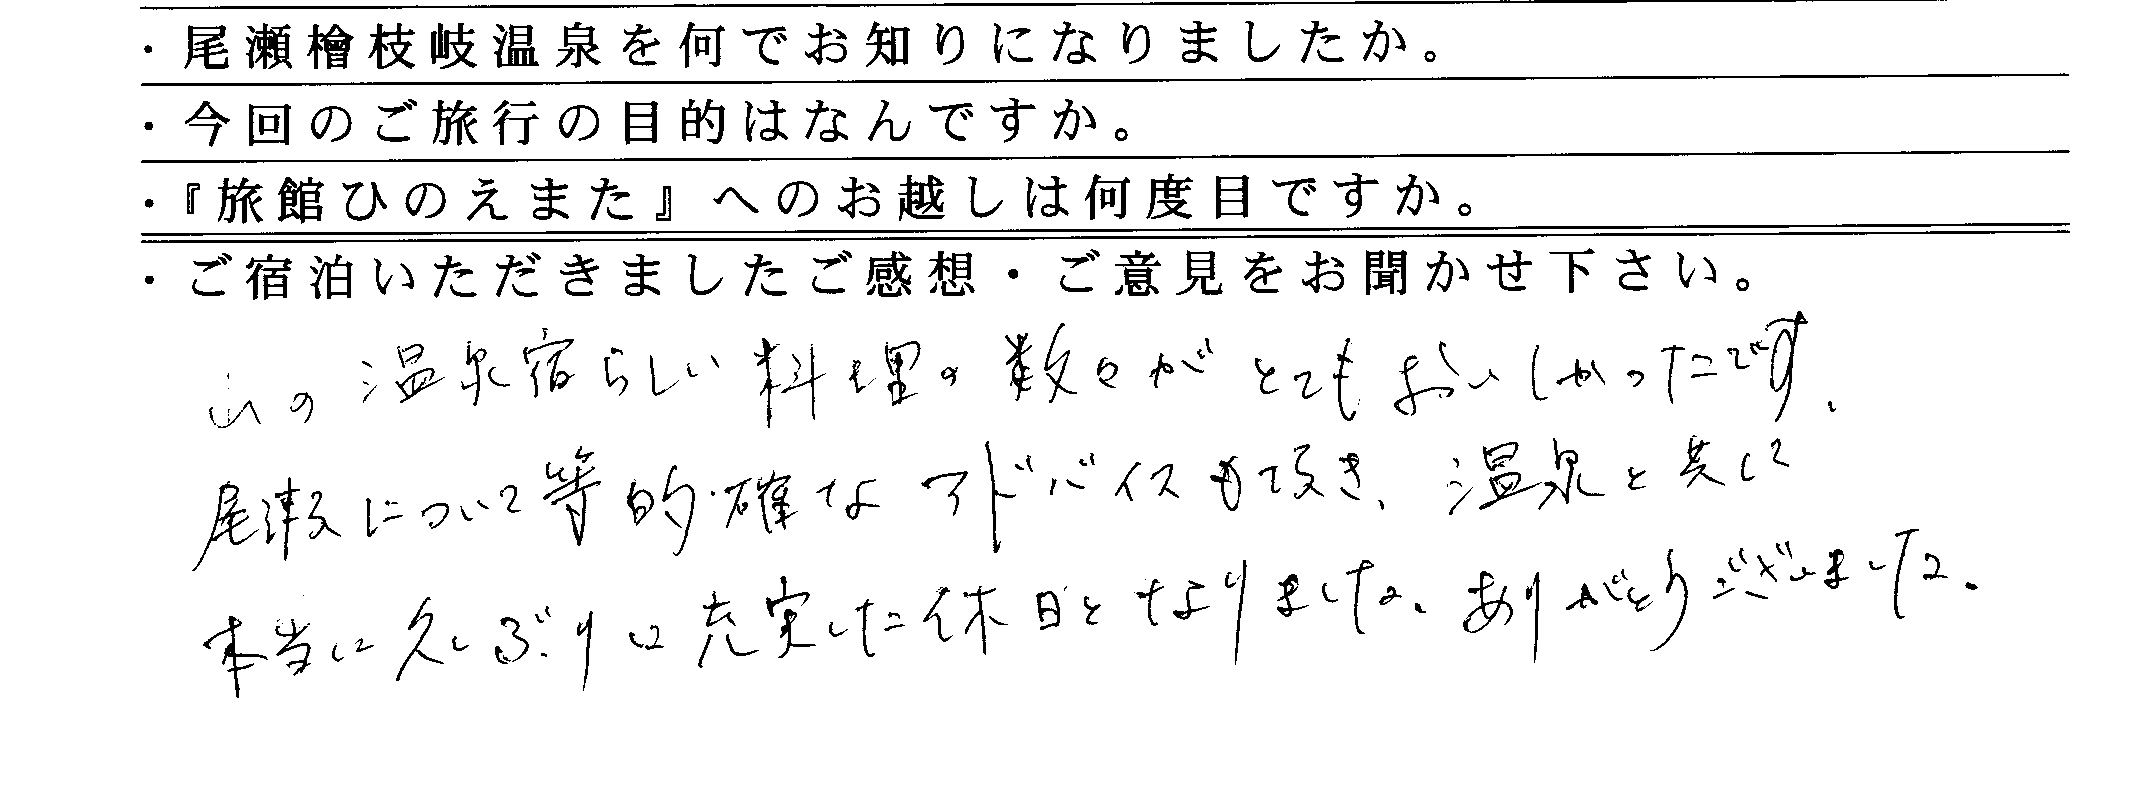 ・尾瀬檜枝岐温泉を何でお知りになりましたか。
・今回のご旅行の目的はなんですか。
・『旅館ひのえまた』へのお越しは何度目ですか。
・ご宿泊いただきましたご感想・ご意見をお聞かせ下さい。
山の温泉宿らしい料理の数々がとてもおいしかったです。
尾瀬について等的確なアドバイスも頂き、温泉と共に
本当に久しぶりに充実した休日となりました。ありがとうございました。